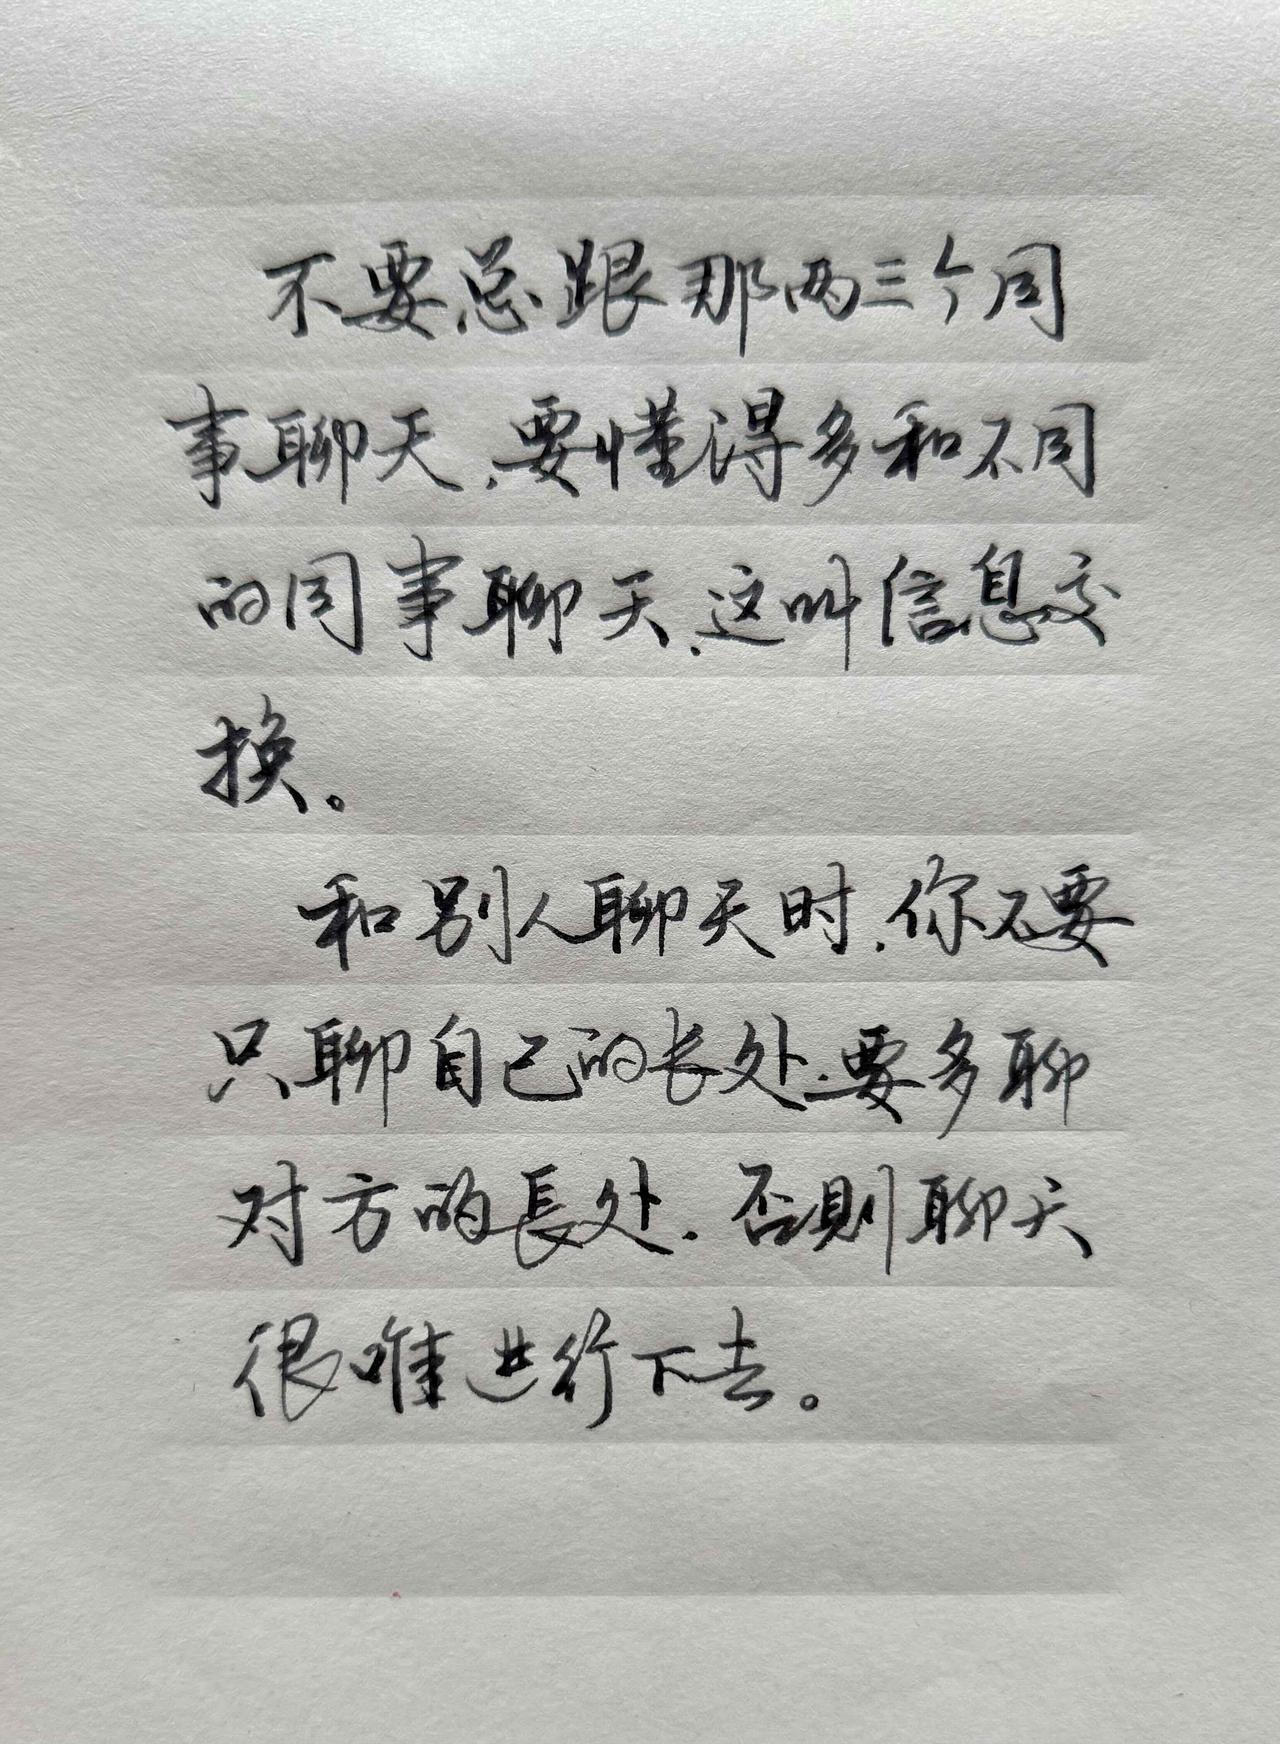 不要总跟那两三个同
事聊天,要懂得多和不同
的同事聊天,这叫信息交
换。
和别人聊天时,你不要
只聊自己的长处,要多聊
对方的長处,否则聊天
很唯进行下去。